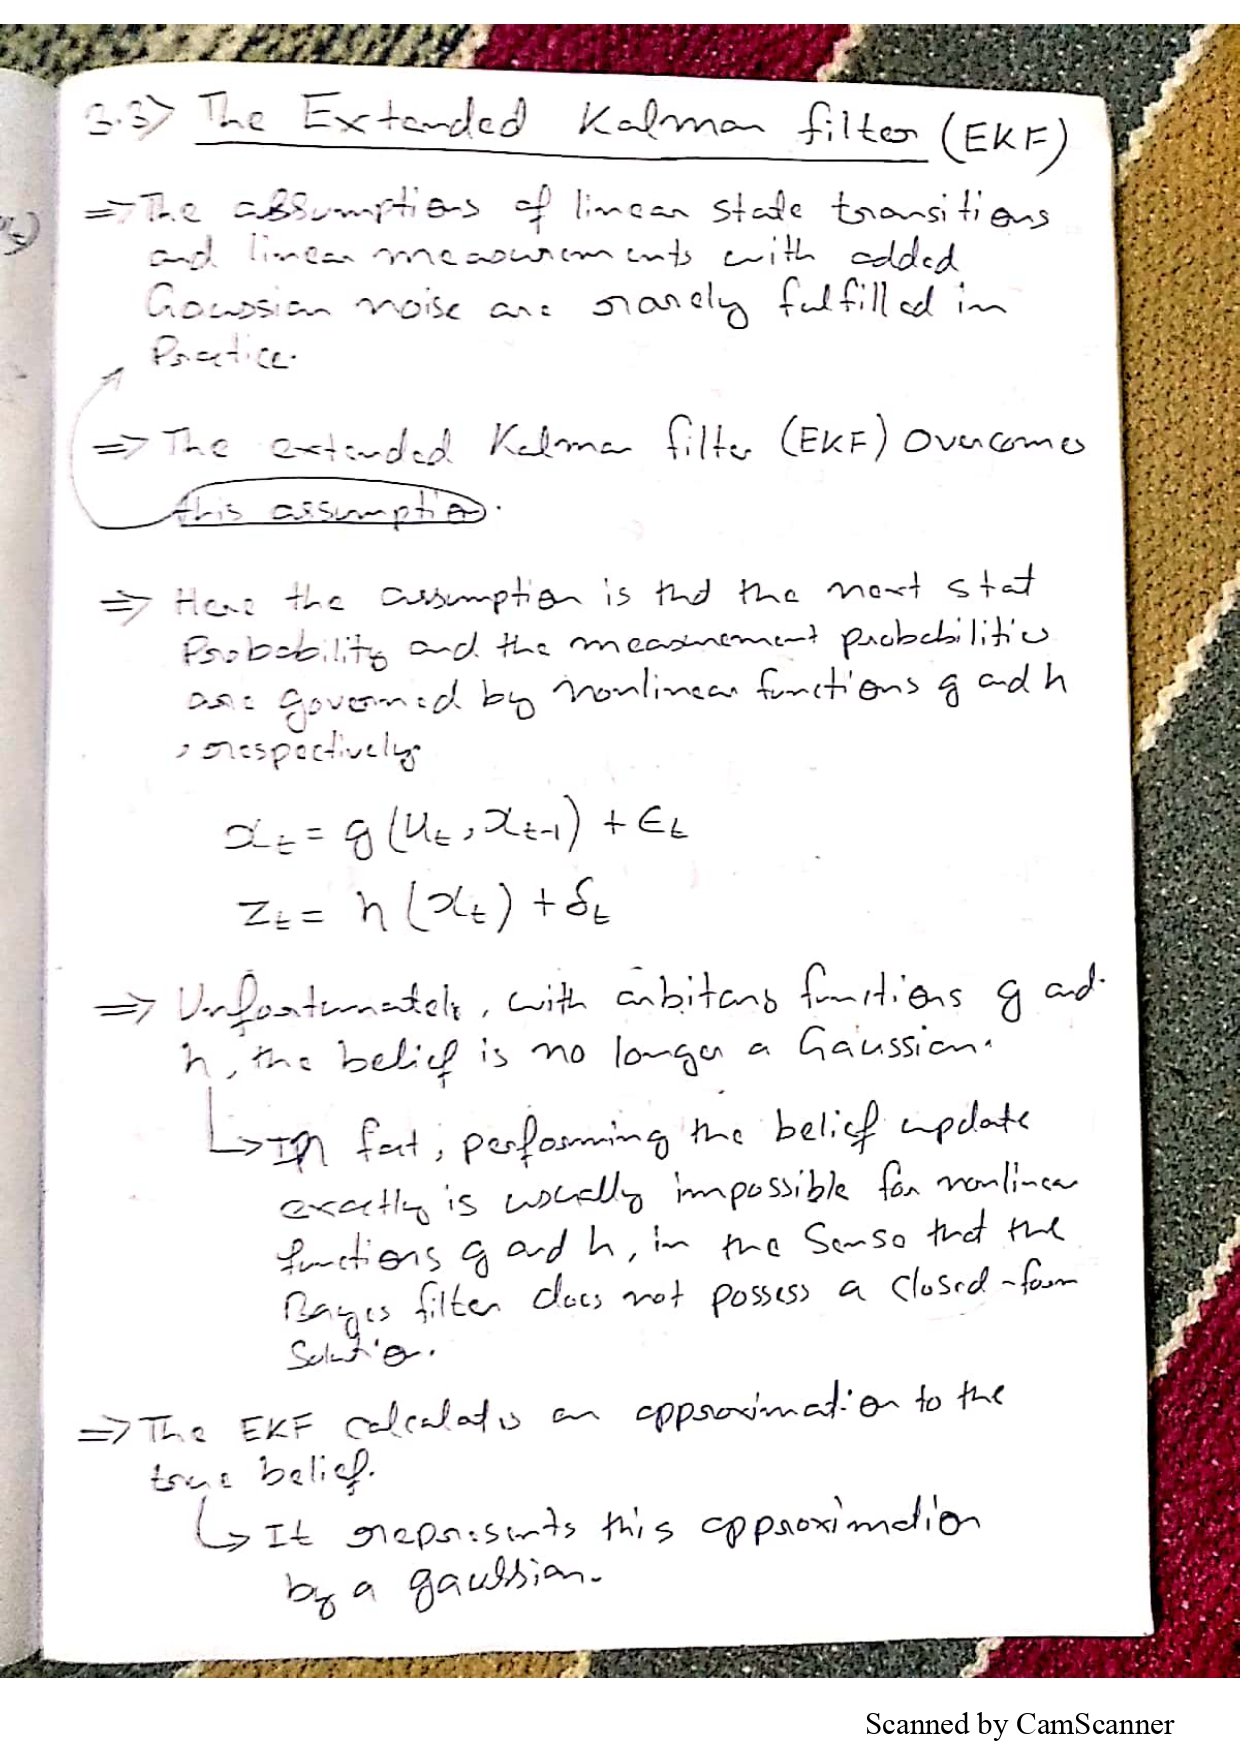 3.3) The Extended Kalman filter (EKF)
⇒ The assumptions of linear state transitions
and linear measurements with added
Gaussian noise are rarely fulfilled in
Practice.
⇒ The extended Kalman filter (EKF) Overcomes
this assumption.
⇒ Here the assumption is that the next stat
Probability and the measurement probabilities
are governed by nonlinear functions g and h
, respectively.
x_t = g(u_t, x_{t-1}) + ε_t
z_t = h(x_t) + δ_t
⇒ Unfortunately, with arbitary functions g and
h, the belief is no longer a Gaussian.
↳ In fact, performing the belief update
exactly is usually impossible for nonlinear
functions g and h, in the Sense that the
Bayes filter does not possess a closed-form
Solution.
⇒ The EKF calculates an approximation to the
true belief.
↳ It represents this approximation
by a gaussian.
Scanned by CamScanner